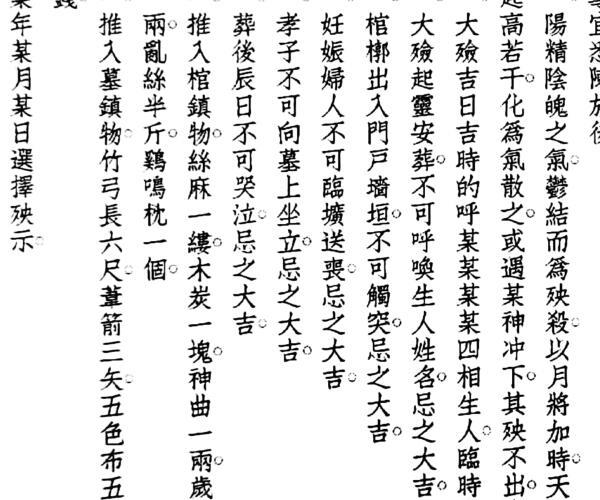 事宜悉陳於後
陽精陰魄之氣鬱結而爲殃殺以月將加時天
起高若干化爲氣散之或遇某神冲下其殃不出
大殮吉日吉時的呼某某某某四相生人臨時
大殮起靈安葬不可呼喚生人姓名忌之大吉
棺槨出入門戸墻垣不可觸突忌之大吉
妊娠婦人不可臨壙送喪忌之大吉
孝子不可向墓上坐立忌之大吉
葬後辰日不可哭泣忌之大吉
推入棺鎮物絲麻一縷木炭一塊神曲一兩歲
兩亂絲半斤鷄鳴枕一個
推入墓鎮物竹弓長六尺葦箭三矢五色布五
錢
某年某月某日選擇殃示